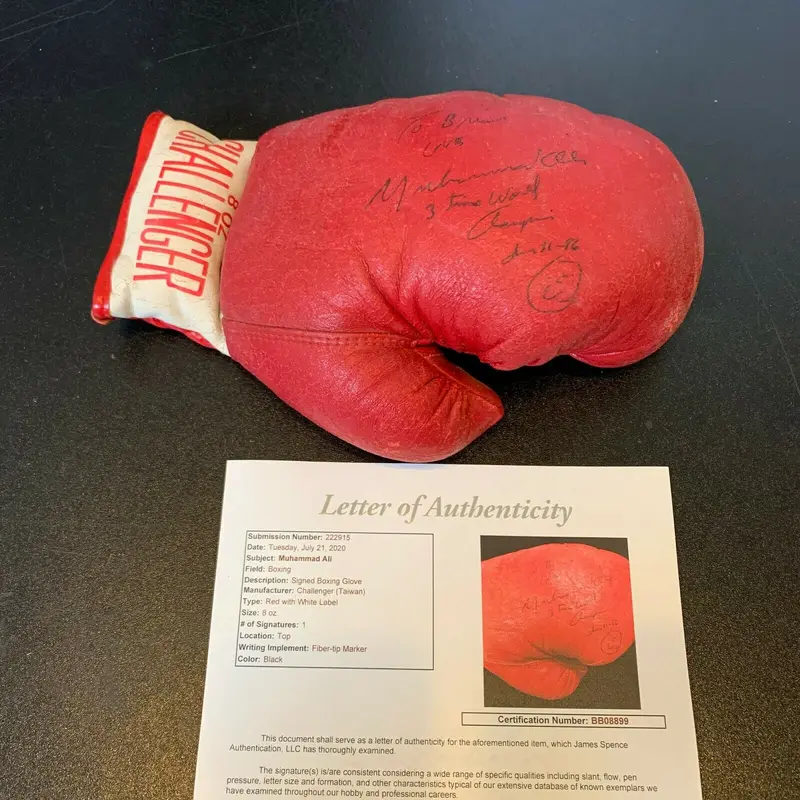 CHALLENGER
8 OZ
To Brian
Muhammad Ali
3 time World
Champion
Letter of Authenticity
Submission Number: 222915
Date: Tuesday, July 21, 2020
Subject: Muhammad Ali
Field: Boxing
Description: Signed Boxing Glove
Manufacturer: Challenger (Taiwan)
Type: Red with White Label
Size: 8 oz
# of Signatures: 1
Location: Top
Writing Implement: Fiber-tip Marker
Color: Black
Certification Number: BB08899
This document shall serve as a letter of authenticity for the aforementioned item, which James Spence
Authentication, LLC has thoroughly examined.
The signature(s) is/are consistent considering a wide range of specific qualities including slant, flow, pen
pressure, letter size and formation, and other characteristics typical of our extensive database of known exemplars we
have examined throughout our hobby and professional careers.